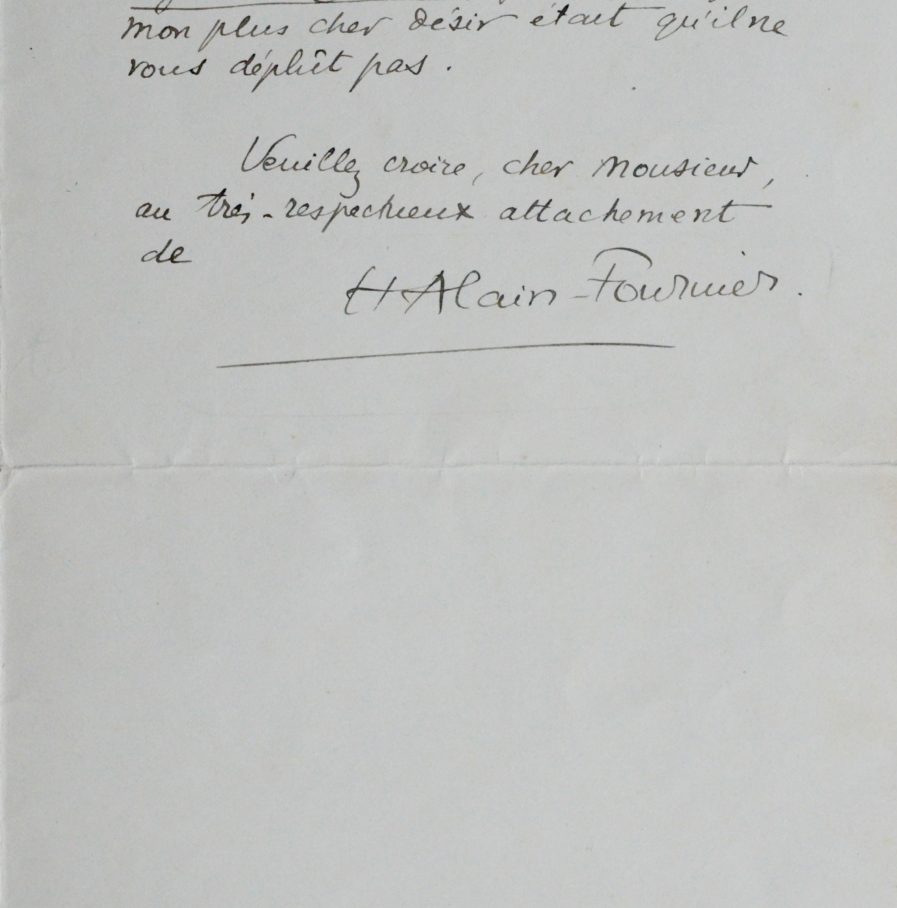 mon plus cher désir était qu'il ne
vous déplût pas.
Veuillez croire, cher Monsieur,
au très-respectueux attachement
de
H Alain-Fournier.